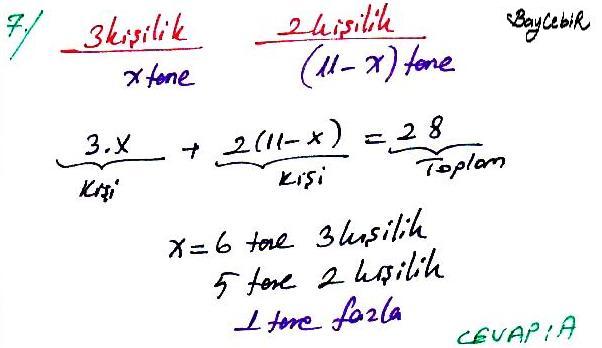 7/ 3kişilik 2kişilik BayCebiR
x tane (11-x) tane
3.x + 2(11-x) = 28
Kişi Kişi Toplam
x=6 tane 3kişilik
5 tane 2 kişilik
1 tane fazla
CEVAP:A